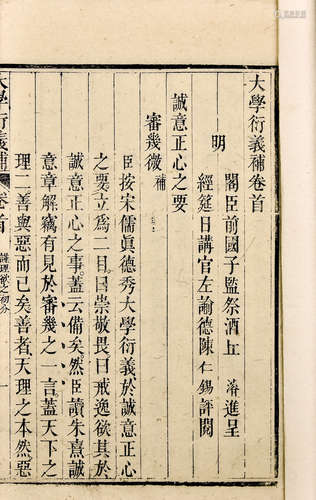 大學衍義補卷首
明　閣臣前國子監祭酒丘　濬進呈
經筵日講官左諭德陳仁錫評閱
誠意正心之要
審幾微補
臣按宋儒眞德秀大學衍義於誠意正心
之要立爲二目曰崇敬畏曰戒逸欲其於
誠意正心之事蓋云備矣然臣讀朱熹誠
意章解竊有見於審幾之一言蓋天下之
理二善與惡而已矣善者天理之本然惡
大學衍義補
卷首
謹理欲之初分
一